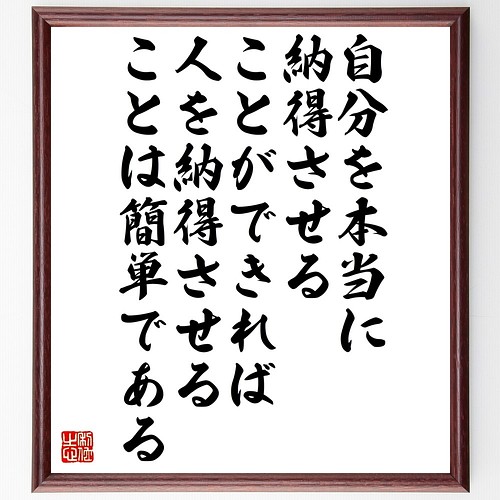 自分を本当に
納得させる
ことができれば
人を納得させる
ことは簡単である